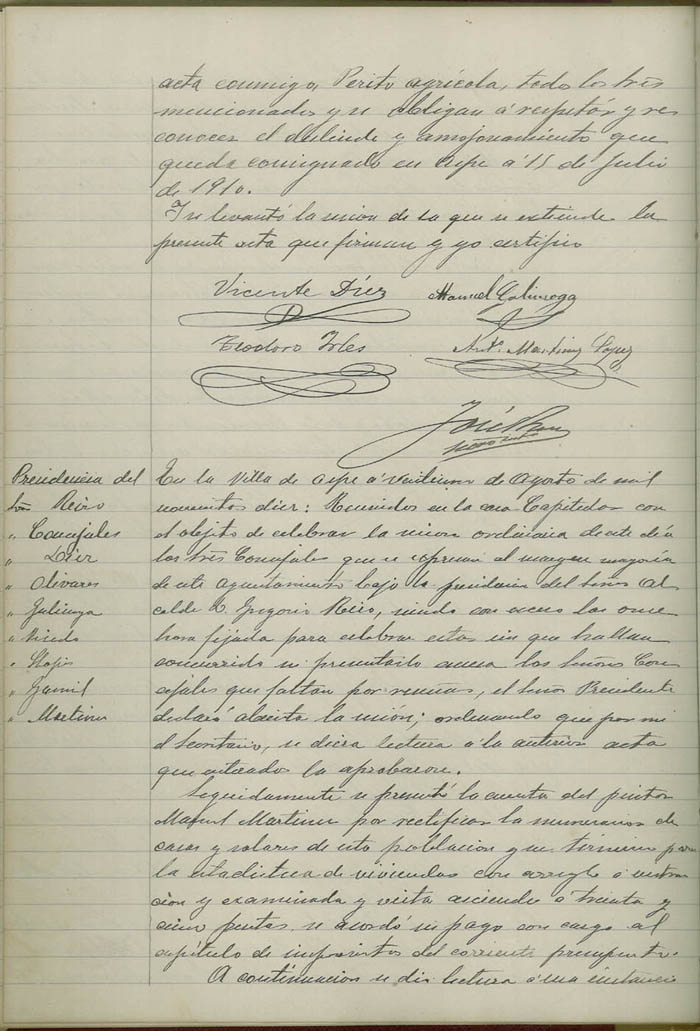 acta conmigo, Perito agrícola, todo los tres
mencionados y se obligan á respetar y res
conocer el deslinde y amojonamiento que
queda consignado en Aspe á 15 de Julio
de 1910.
Y se levantó la sesion de la que se extiende la
presente acta que firman y yo certifico
Vicente Díez Manuel Galinsoga
Teodoro Irles Ant. Martinez Lopez
José
Presidencia del
Sr. Reiro
" Concejales
" Díez
" Olivares
" Galinsoga
"
"
"
" Martinez
En la Villa de Aspe á veintiuno de Agosto de mil
novecientos diez: Reunidos en la casa Capitular con
el objeto de celebrar la sesion ordinaria de este dia
los tres Concejales que se expresan al margen mayoría
de este Ayuntamiento bajo la presidencia del Señor Al
calde D. Gregorio Reiro, siendo con las once
hora fijada para celebrar estas sin que hallan
concurrido ni presentado los Señores Con
cejales que faltan por reunirse, el Señor Presidente
declaró abierta la sesión; ordenando que por mi
el Secretario, se diera lectura á la anterior acta
que enterados la aprobaron.
Seguidamente se presentó la cuenta del pintor
Manuel Martinez por rectificar la numeracion de
casas y solares de esta poblacion y que terminó para
la estadistica de viviendas con arreglo á instruc
cion y examinada y vista asciende á treinta y
cinco pesetas se acordó su pago con cargo al
capítulo de imprevistos del corriente presupuesto.
A continuacion se dio lectura á una instancia